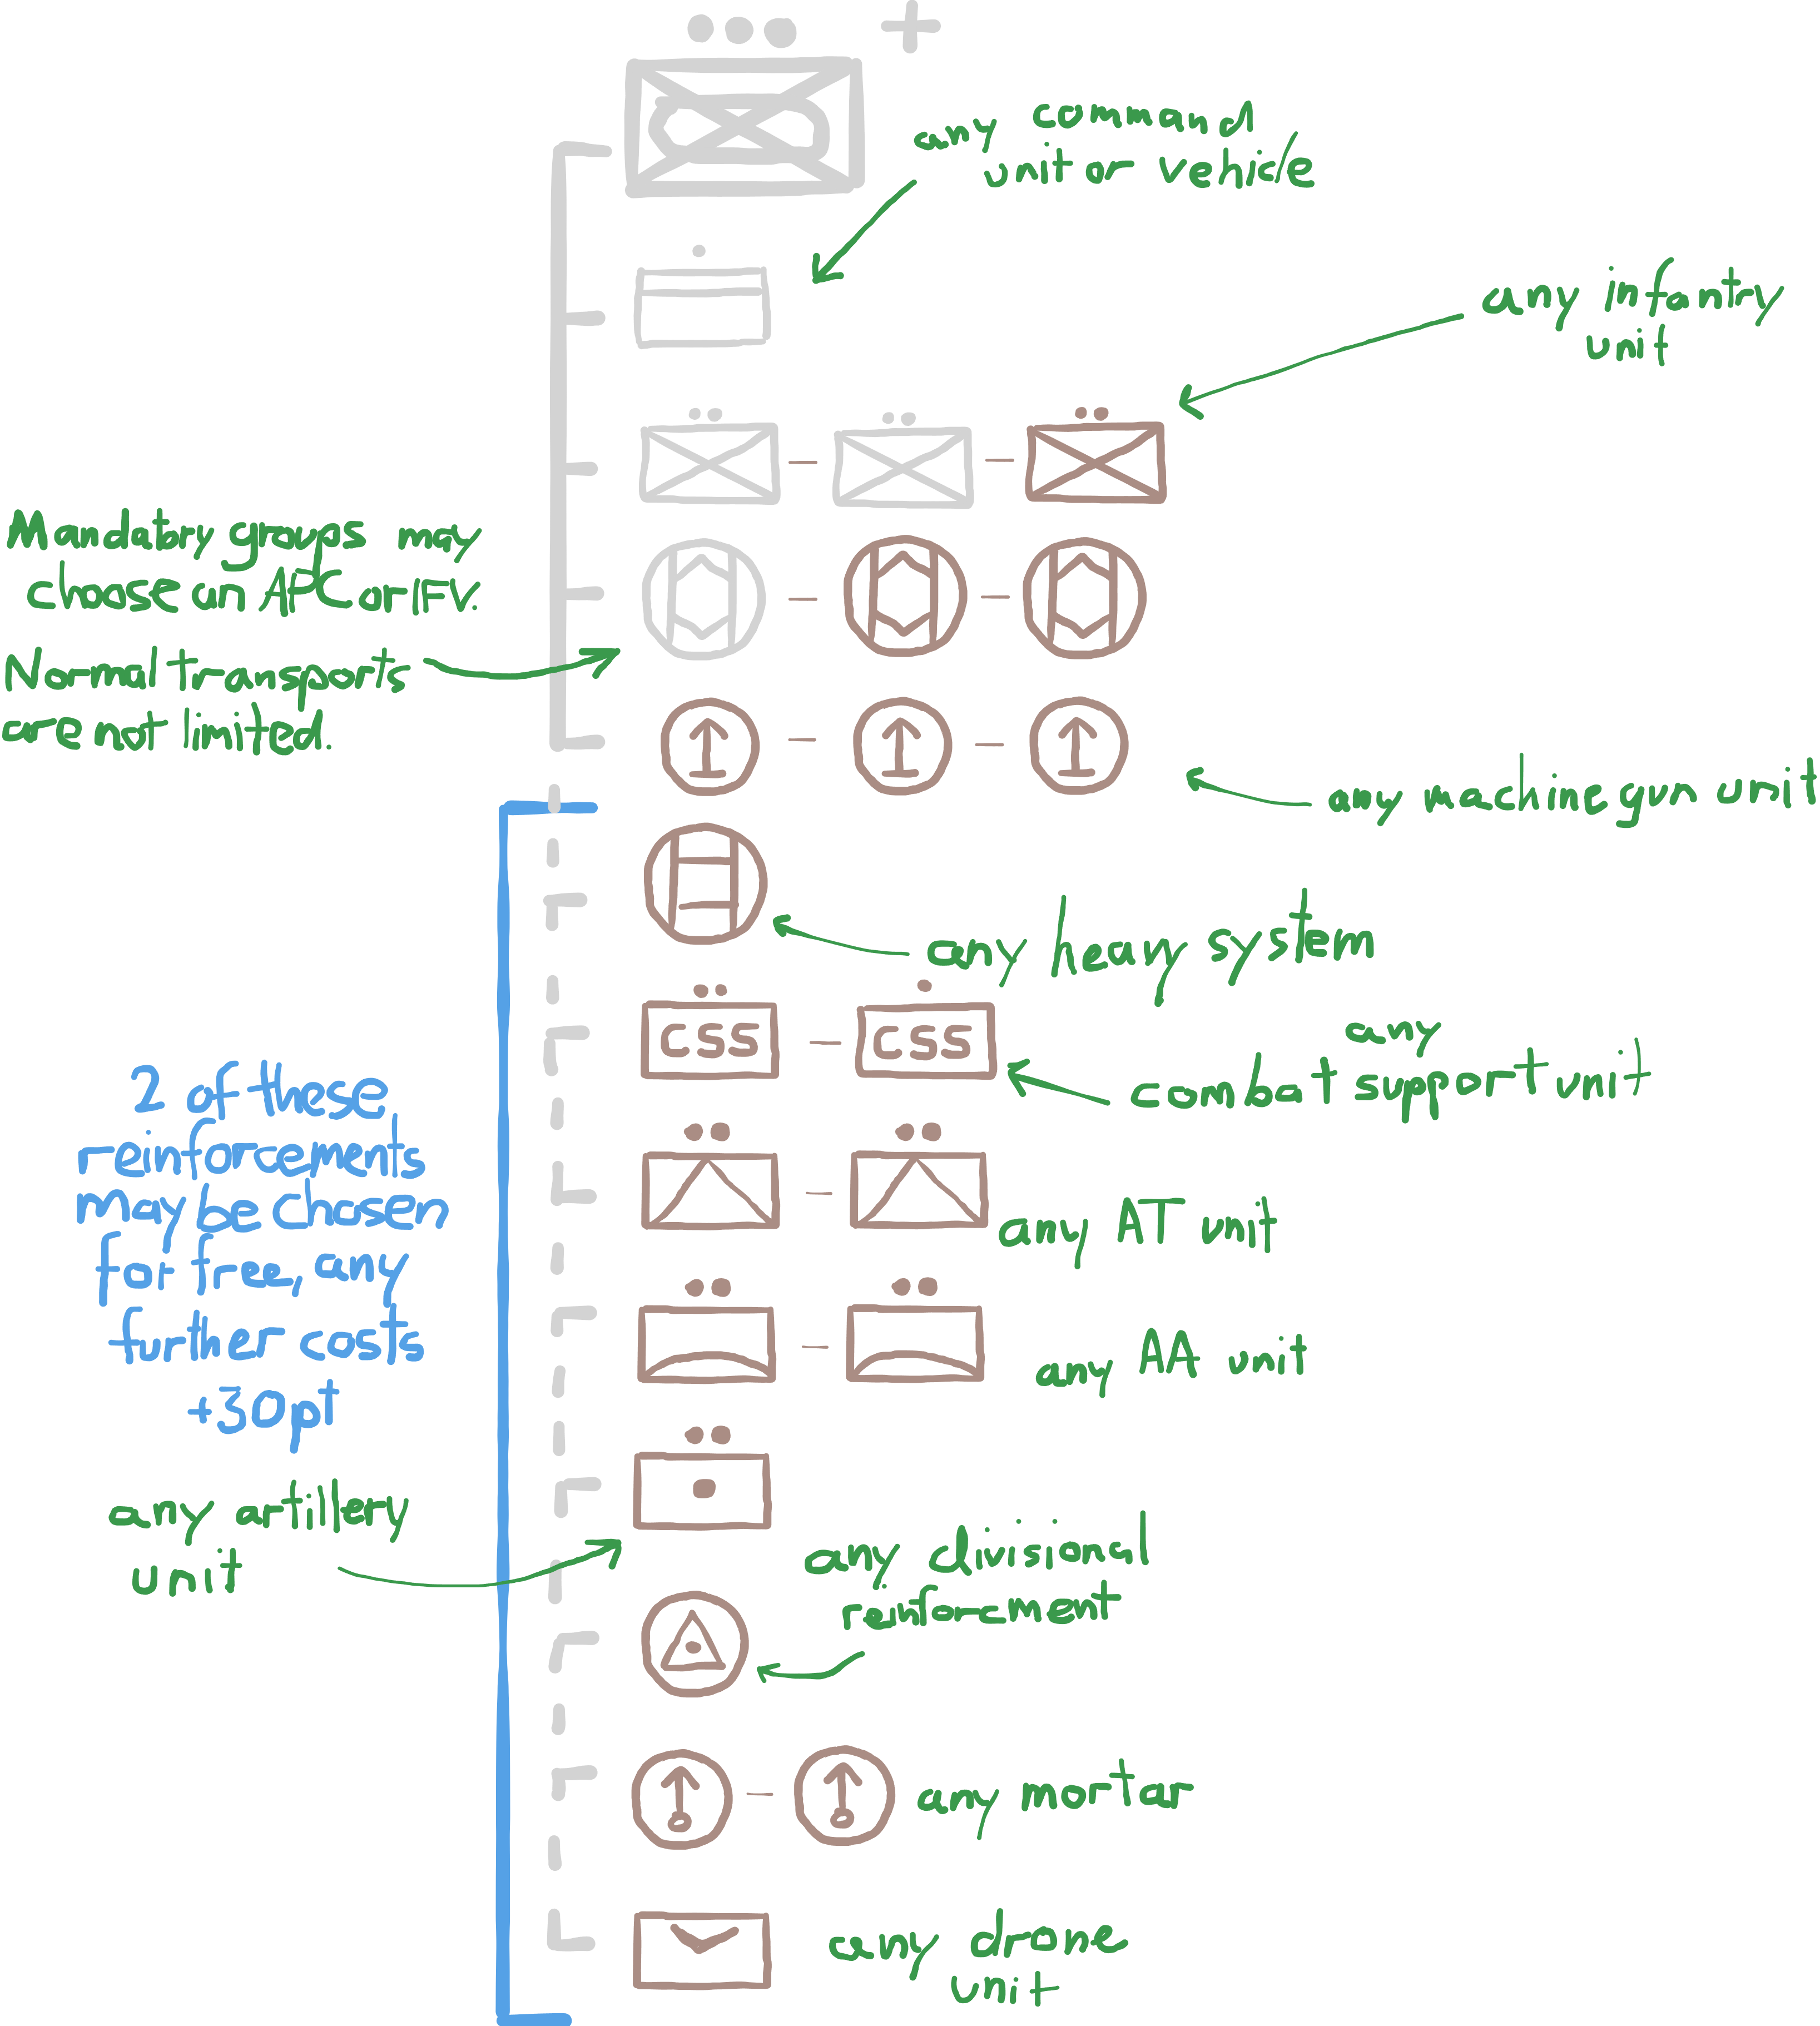 any command
unit or vehicle
any infantry
unit
Mandatory groups may
choose an APC or IFV.
Normal transports
are not limited.
any machinegun unit
any heavy system
CSS CSS
any
combat support unit
2 of these
reinforcements
may be chosen
for free, any
further costs
+30pt
any AT unit
any AA unit
any artillery
unit
any divisional
reinforcement
any mortar
any drone
unit